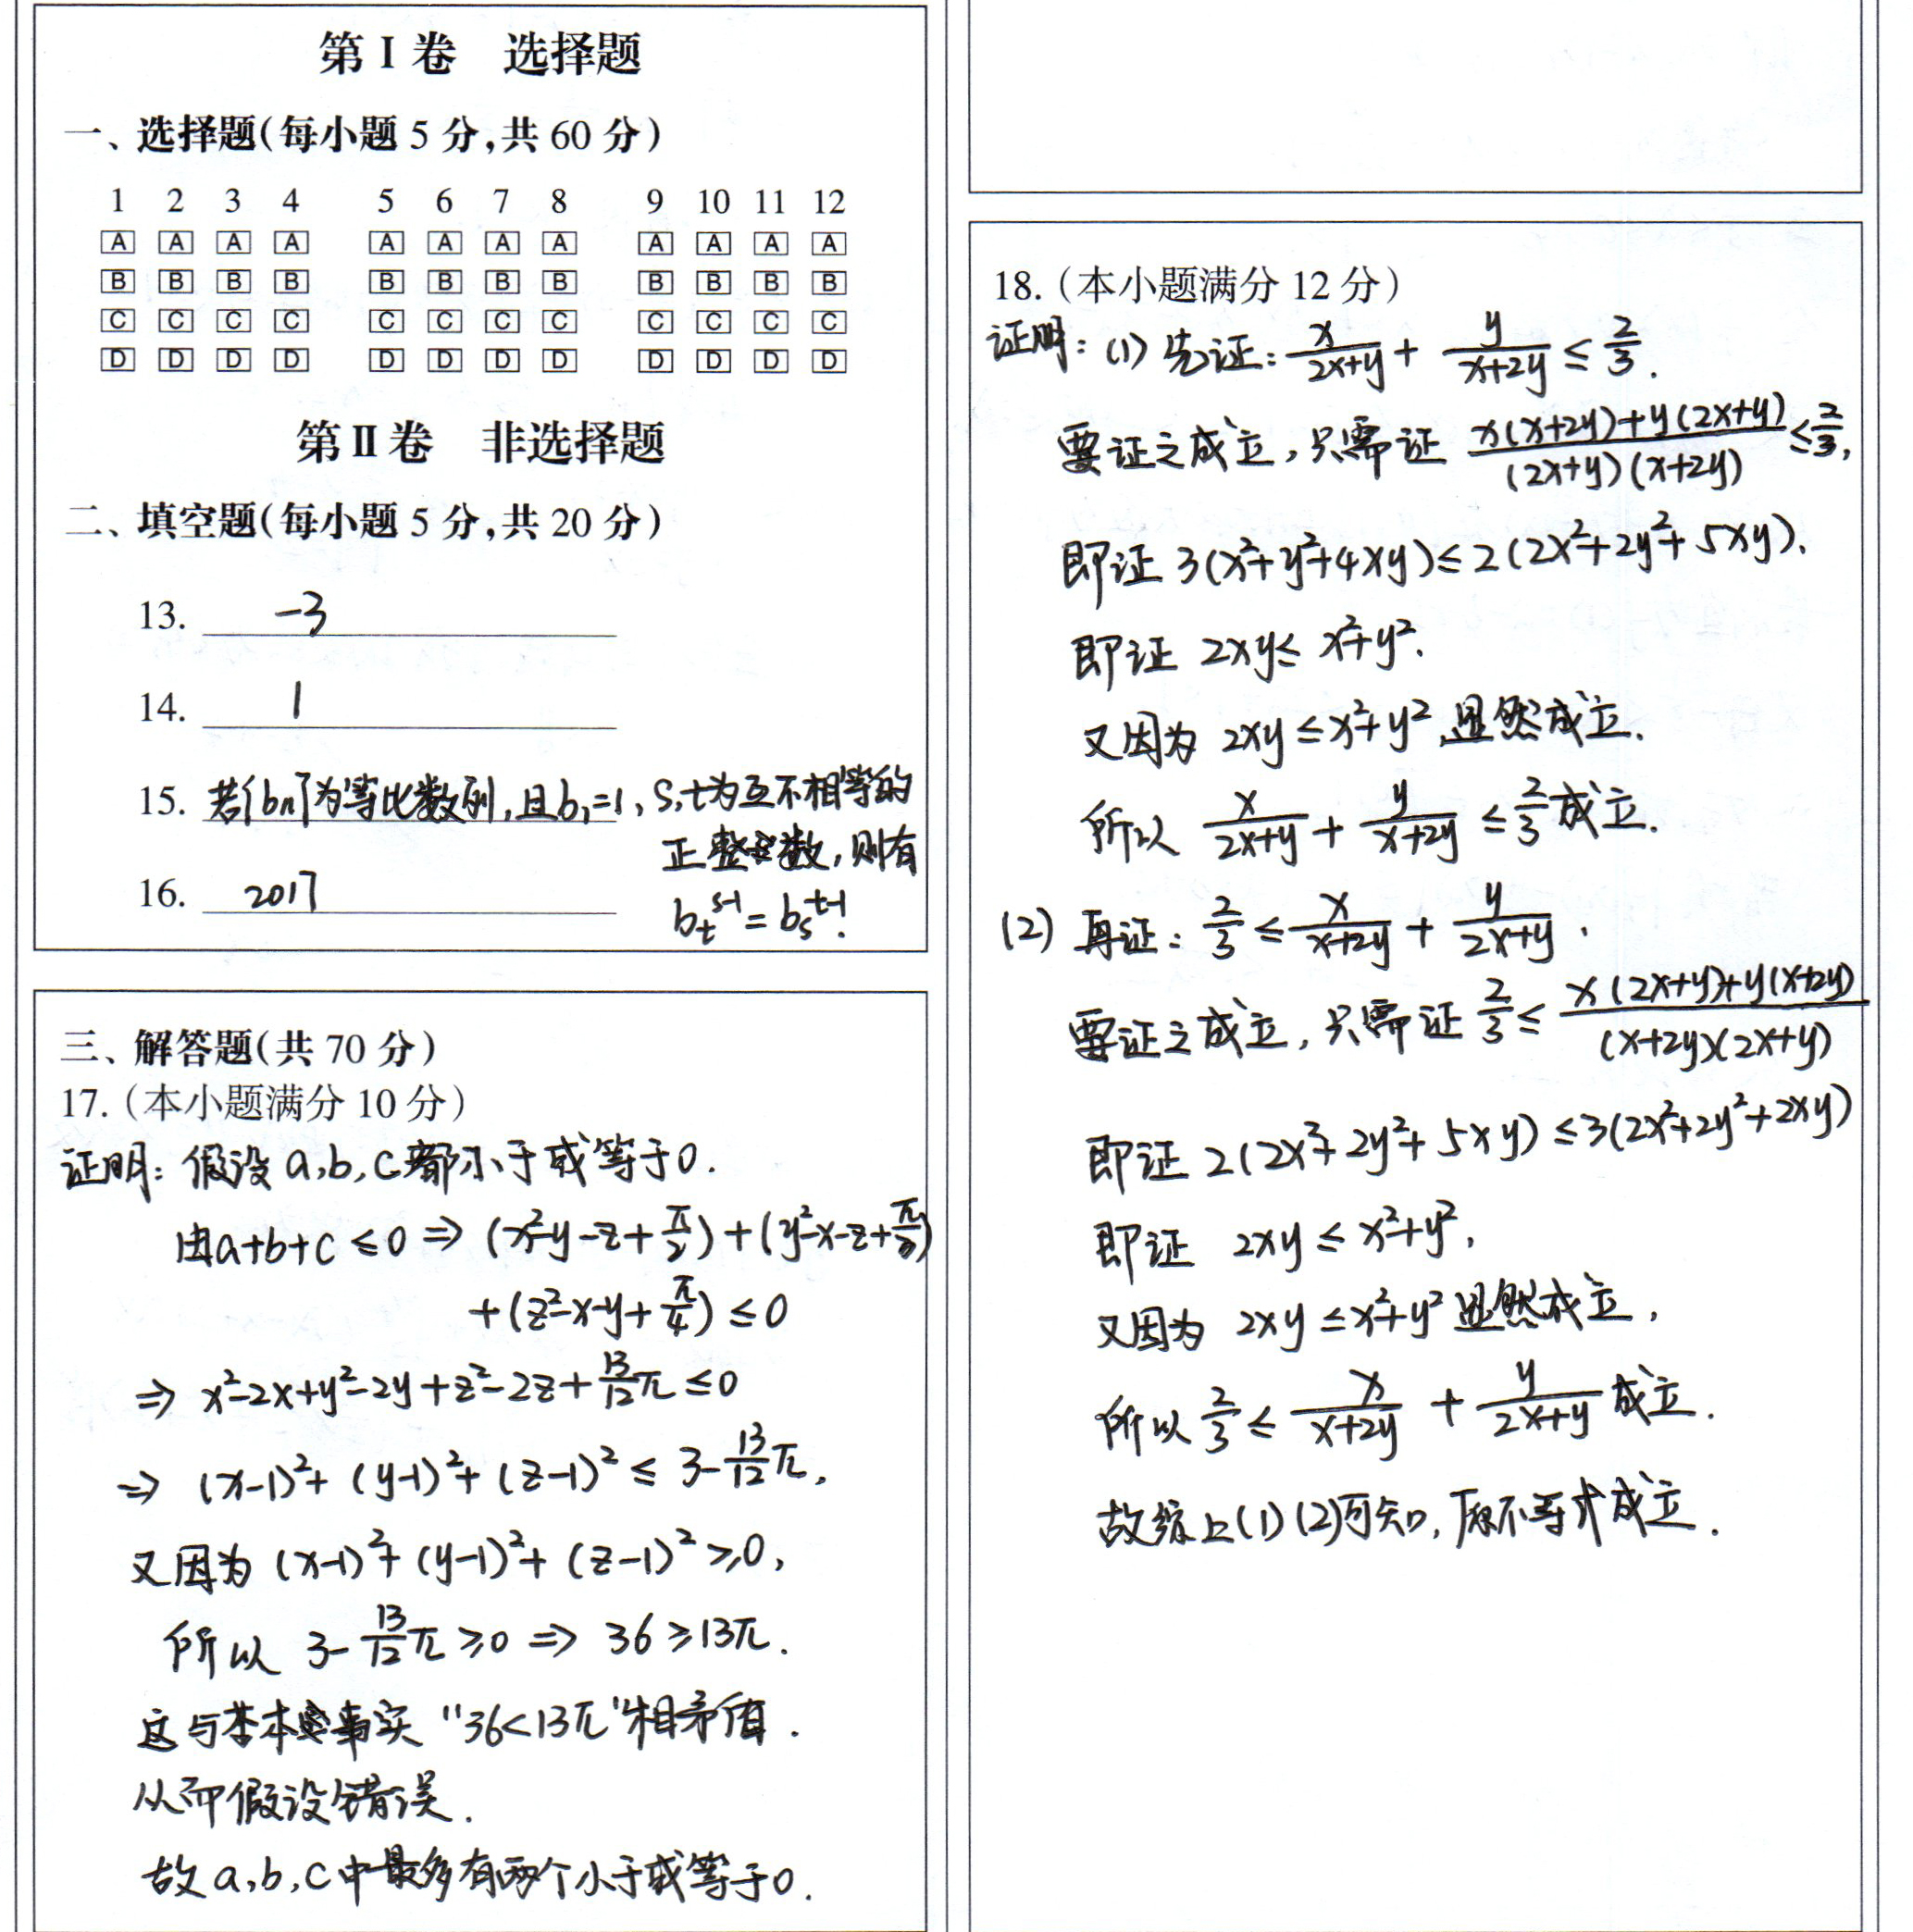 第Ⅰ卷 选择题
一、选择题(每小题 5 分,共 60 分)
1 2 3 4 5 6 7 8 9 10 11 12
A A A A A A A A A A A A
B B B B B B B B B B B B
C C C C C C C C C C C C
D D D D D D D D D D D D
第Ⅱ卷 非选择题
二、填空题(每小题 5 分,共 20 分)
13. -3
14. 1
15. 若{bn}为等比数列,且b₁=1,s,t为互不相等的
正整数,则有
16. 2017
b_t^{s-1} = b_s^{t-1}.
三、解答题(共 70 分)
17.(本小题满分 10 分)
证明:假设a,b,c都小于或等于0.
由a+b+c≤0 ⇒ (x²-y-z+π/2)+(y²-x-z+π/3)
+(z²-x-y+π/4)≤0
⇒ x²-2x+y²-2y+z²-2z+13/12π≤0
⇒ (x-1)²+(y-1)²+(z-1)²≤3-13/12π,
又因为 (x-1)²+(y-1)²+(z-1)²≥0,
所以 3-13/12π≥0 ⇒ 36≥13π.
这与基本事实"36<13π"相矛盾.
从而假设错误.
故a,b,c中最多有两个小于或等于0.
18.(本小题满分 12 分)
证明:(1)先证:x/(2x+y)+y/(x+2y)≤2/3.
要证之成立,只需证 (x(x+2y)+y(2x+y))/((2x+y)(x+2y))≤2/3,
即证 3(x²+y²+4xy)≤2(2x²+2y²+5xy).
即证 2xy≤x²+y².
又因为 2xy≤x²+y² 显然成立.
所以 x/(2x+y)+y/(x+2y)≤2/3成立.
(2) 再证:2/3≤x/(x+2y)+y/(2x+y).
要证之成立,只需证 2/3≤(x(2x+y)+y(x+2y))/((x+2y)(2x+y))
即证 2(2x²+2y²+5xy)≤3(2x²+2y²+2xy)
即证 2xy≤x²+y²,
又因为 2xy≤x²+y² 显然成立,
所以 2/3≤x/(x+2y)+y/(2x+y)成立.
故综上(1)(2)可知,原不等式成立.